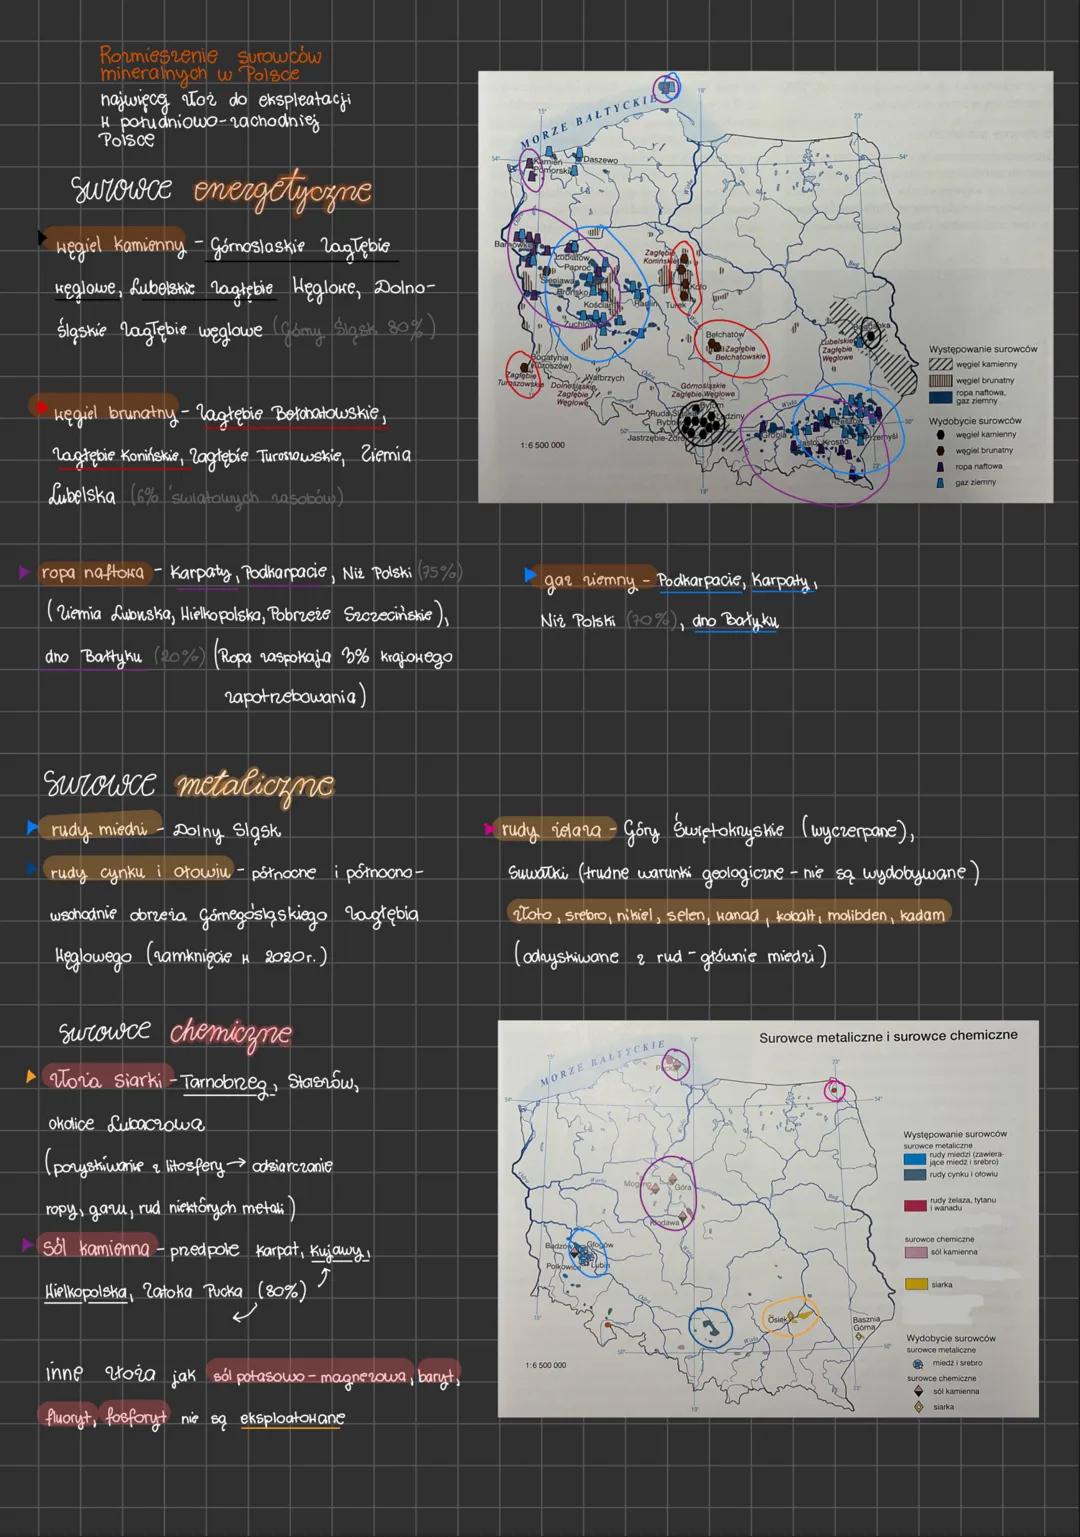 Rozmieszenie surowców
mineralnych w Polsce
najwięcej złóż do eksploatacji
w południowo-zachodniej
Polsce
surowce energetyczne
węgiel kamienny - Górnośląskie Zagłębie
węglowe, Lubelskie Zagłębie Węglowe, Dolno-
śląskie Zagłębie węglowe (Górny Śląsk 80%)
węgiel brunatny - Zagłębie Bełchatowskie,
Zagłębie Konińskie, Zagłębie Turoszowskie, Ziemia
Lubelska (6% światowych zasobów)
MORZE BAŁTYCKIE
15°
18°
23°
54°
54°
Kamień
Pomorski
Daszewo
Barnówko
Lubiatów
Paproć
Brońsko
Kościan
Żuchlów
Radlin
Zagłębie
Konińskie
Koło
Turek
Bełchatów
Zagłębie
Bełchatowskie
Bogatynia
(Turoszów)
Zagłębie
Turoszowskie
Wałbrzych
Dolnośląskie
Zagłębie
Węglowe
Górnośląskie
Zagłębie Węglowe
Bytom
Ruda Śl.
Rybnik
Lędziny
Jastrzębie-Zdrój
Bogdanka
Lubelskie
Zagłębie
Węglowe
Grobla
Jasło
Krosno
Rzeszów
Przemyśl
Odra
Wisła
Bug
50°
50°
19°
1:6 500 000
Występowanie surowców
węgiel kamienny
węgiel brunatny
ropa naftowa,
gaz ziemny
Wydobycie surowców
węgiel kamienny
węgiel brunatny
ropa naftowa
gaz ziemny
ropa naftowa - Karpaty, Podkarpacie, Niż Polski (75%)
(Ziemia Lubuska, Wielkopolska, Pobrzeże Szczecińskie),
dno Bałtyku (20%) (Ropa zaspokaja 3% krajowego
zapotrzebowania)
gaz ziemny - Podkarpacie, Karpaty,
Niż Polski (70%), dno Bałtyku
surowce metaliczne
rudy miedzi - Dolny Śląsk
rudy cynku i ołowiu - północne i północno-
wschodnie obrzeża Górnegośląskiego Zagłębia
Węglowego (zamknięcie w 2020r.)
rudy żelaza - Góry Świętokrzyskie (wyczerpane),
Suwałki (trudne warunki geologiczne - nie są wydobywane)
złoto, srebro, nikiel, selen, wanad, kobalt, molibden, kadam
(odzyskiwane z rud - głównie miedzi)
surowce chemiczne
złoża siarki - Tarnobrzeg, Staszów,
okolice Lubaczowa
(pozyskiwanie z litosfery → odsiarczanie
ropy, gazu, rud niektórych metali)
sól kamienna - przedpole Karpat, Kujawy,
Wielkopolska, Zatoka Pucka (80%)
inne złoża jak sól potasowo-magnezowa, baryt,
fluoryt, fosforyt nie są eksploatowane
Surowce metaliczne i surowce chemiczne
MORZE BAŁTYCKIE
15°
19°
23°
54°
54°
Mogilno
Góra
Kłodawa
Głogów
Polkowice
Lubin
Osiek
Basznia
Górna
Warta
Bug
Odra
Wisła
15°
50°
50°
19°
23°
1:6 500 000
Występowanie surowców
surowce metaliczne
rudy miedzi (zawiera-
jące miedź i srebro)
rudy cynku i ołowiu
rudy żelaza, tytanu
i wanadu
surowce chemiczne
sól kamienna
siarka
Wydobycie surowców
surowce metaliczne
miedź i srebro
surowce chemiczne
sól kamienna
siarka